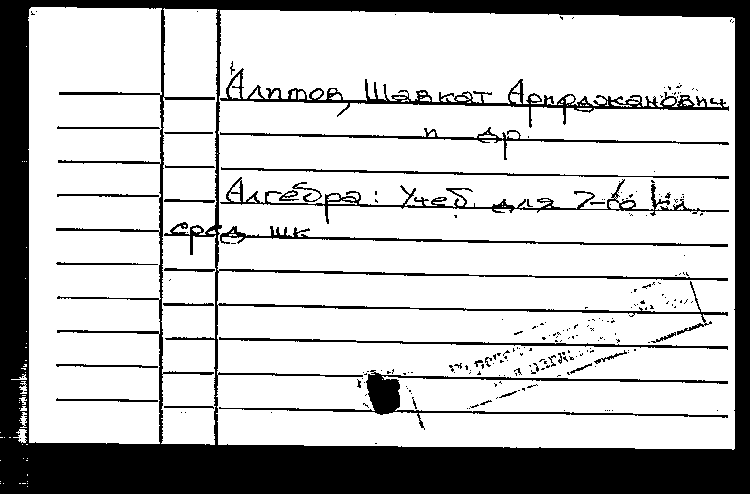 Алимов, Шавкат Арифджанович
и др.
Алгебра: Учеб. для 7-го кл.
сред. шк